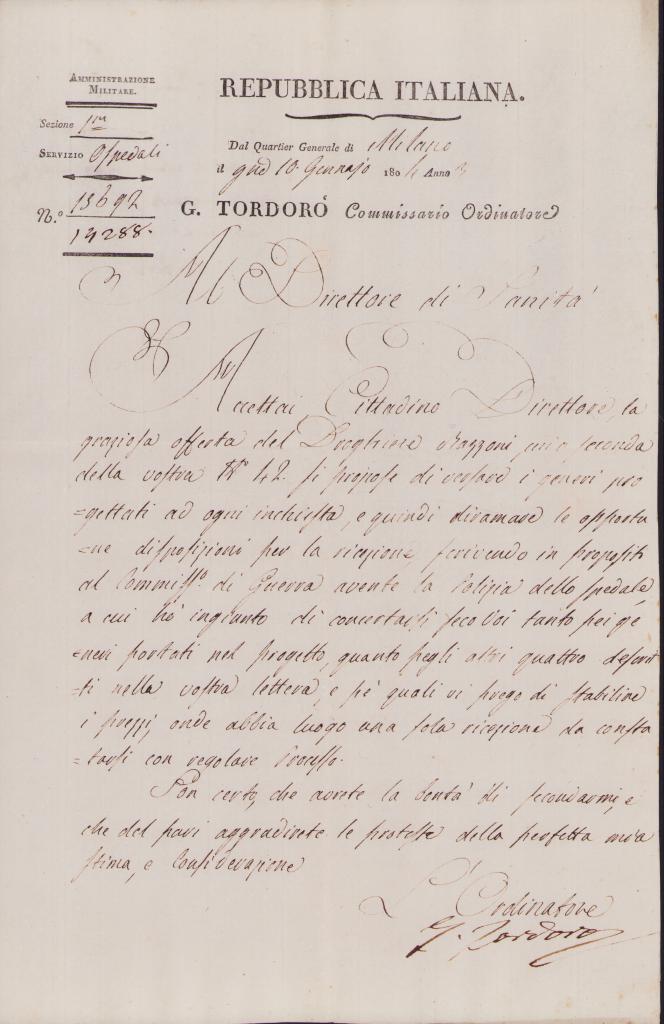 AMMINISTRAZIONE
MILITARE.
Sezione 1.ma
SERVIZIO Ospedali
N.º 13692
19288.
REPUBBLICA ITALIANA.
Dal Quartier Generale di Milano
il 10 Gennajo 1804 Anno 3
G. TORDORÓ Commissario Ordinatore
Al Direttore di Sanità
Accettai, Cittadino Direttore, la
graziosa offerta del Droghiere Razzoni, che seconda
della vostra Nº 42. si propose di versare i generi pro
=gettati ad ogni inchiesta, e quindi diramare le opportu
=ne disposizioni per la ricezione, scrivendo in proposito
al Commissº. di Guerra avente la Polizia dello spedale,
a cui hò ingiunto di concertarsi seco Voi tanto pei ge
=neri portati nel progetto, quanto pegli altri quattro descrit
=ti nella vostra lettera, e pe' quali vi prego di stabilire
i prezzi, onde abbia luogo una sola ricezione da consta
=tarsi con regolare Processo.
Son certo, che avrete la bontà di secondarmi, e
che del pari aggradirete le proteste della perfetta mia
stima, e Considerazione
L'Ordinatore
G. Tordorò